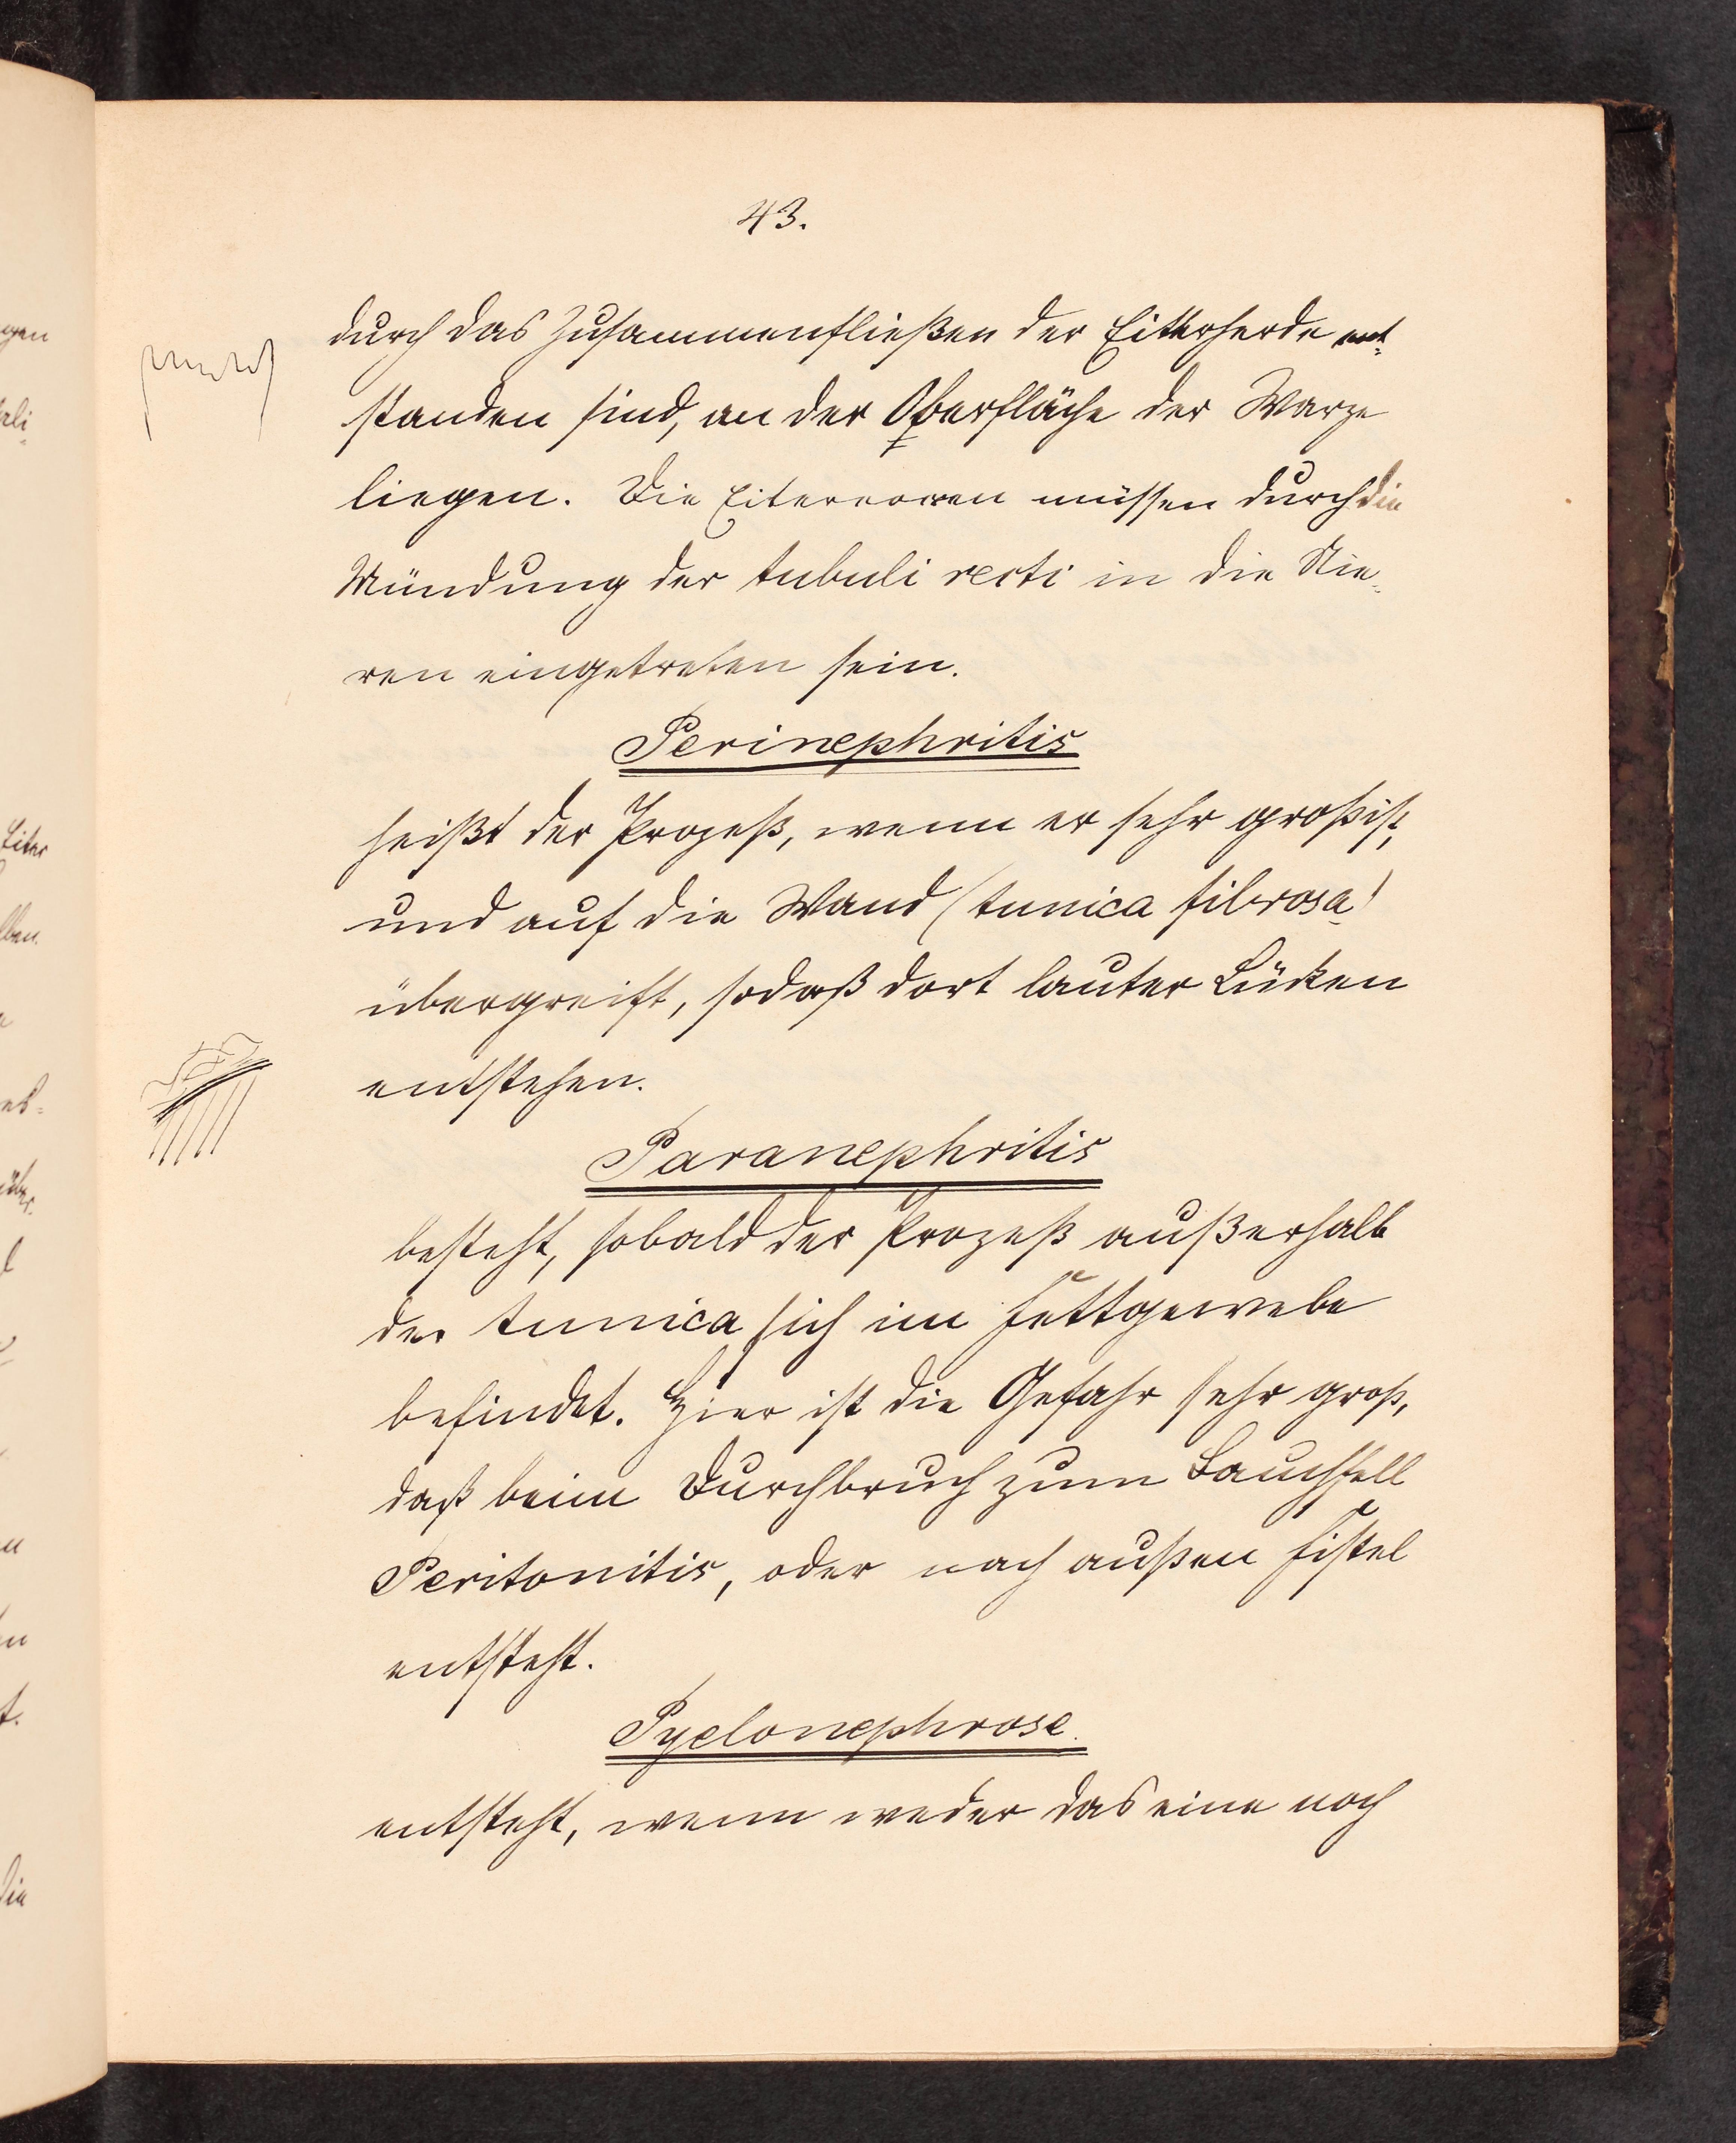 43.
durch das Zusammenfließen der Eiterherde ent-
standen sind, an der Oberfläche der Warze
liegen. Die Eitererreger müssen durch die
Mündung der tubuli recti in die Nie-
ren eingetreten sein.
Perinephritis
heißt der Prozeß, wenn er sehr groß ist,
und auf die Wand (tunica fibrosa)
übergreift, sodaß dort lauter Lücken
entstehen.
Paranephritis
besteht, sobald der Prozeß außerhalb
der tunica sich im Fettgewebe
befindet. Hier ist die Gefahr sehr groß,
daß beim Durchbruch zum Bauchfell
Peritonitis, oder nach außen Fistel
entsteht.
Pyelonephrose.
entsteht, wenn weder das eine noch